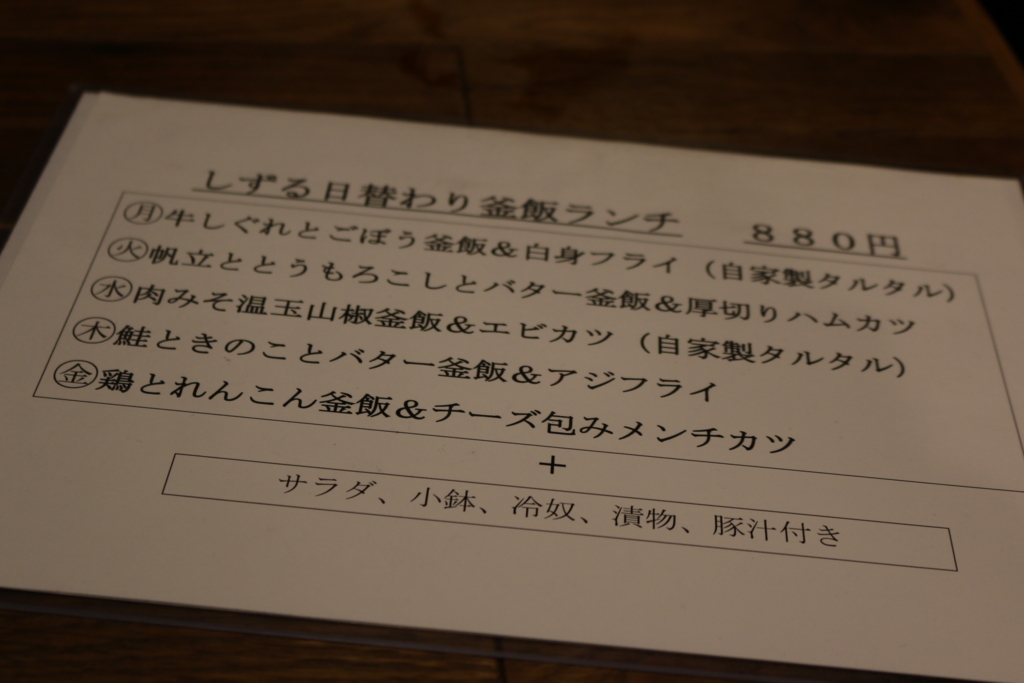 しずる日替わり釜飯ランチ　８８０円
㊊牛しぐれとごぼう釜飯＆白身フライ（自家製タルタル）
㊋帆立ととうもろこしとバター釜飯＆厚切りハムカツ
㊌肉みそ温玉山椒釜飯＆エビカツ（自家製タルタル）
㊍鮭ときのことバター釜飯＆アジフライ
㊎鶏とれんこん釜飯＆チーズ包みメンチカツ
＋
サラダ、小鉢、冷奴、漬物、豚汁付き